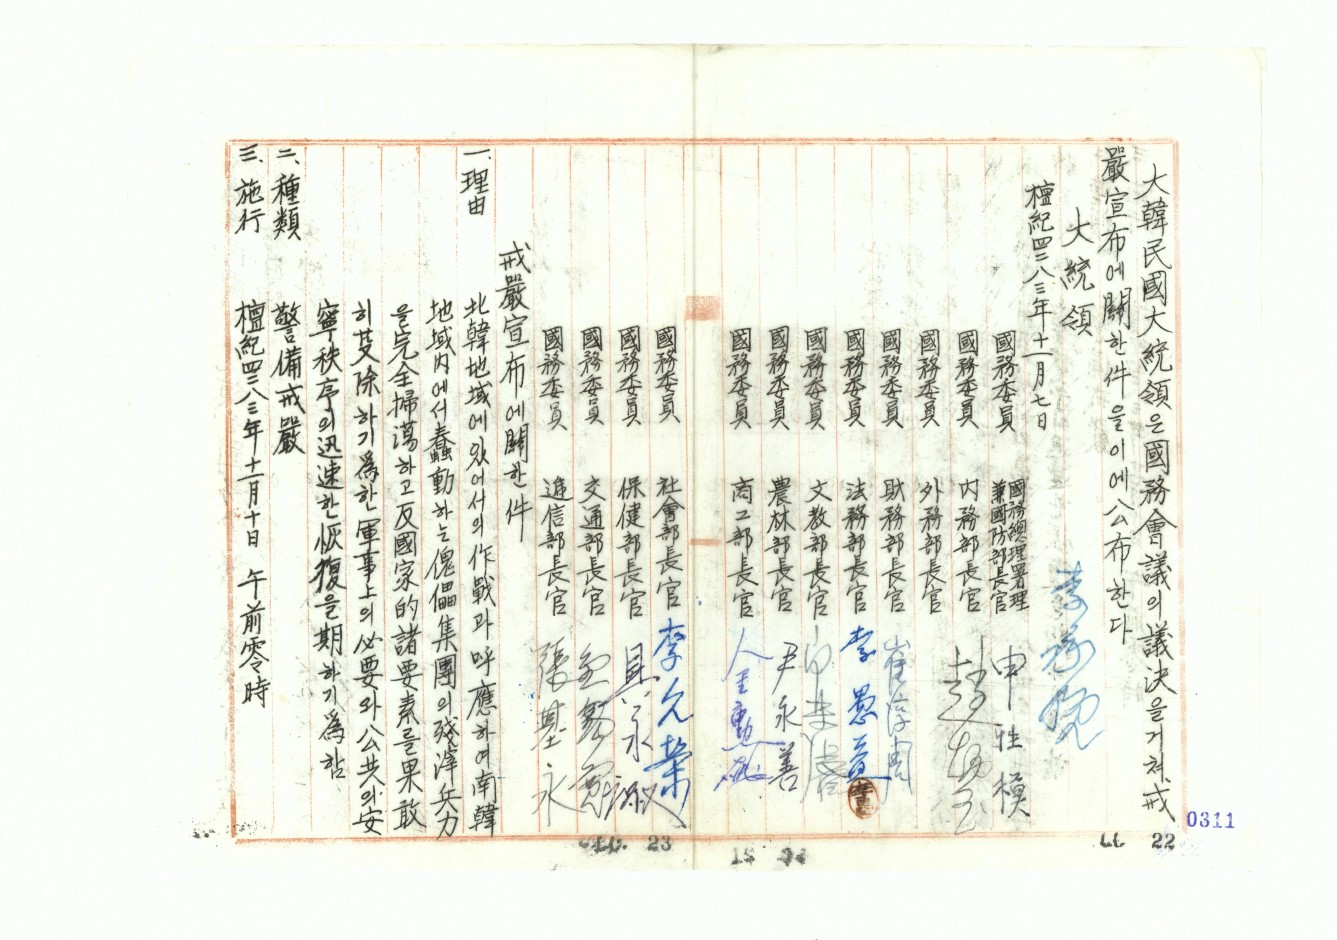 大韓民國大統領은國務會議의議決을거쳐戒
嚴宣布에關한件을이에公布한다
大統領 李承晩
檀紀四二八三年十一月七日
國務委員 國務總理署理
兼國防部長官 申性模
國務委員 內務部長官 趙炳玉
國務委員 外務部長官
國務委員 財務部長官 崔淳周
國務委員 法務部長官 李愚益
國務委員 文敎部長官
國務委員 農林部長官 尹永善
國務委員 商工部長官 金勳
國務委員 社會部長官 李允榮
國務委員 保健部長官 具永淑
國務委員 交通部長官
國務委員 遞信部長官 張基永
戒嚴宣布에關한件
一、理由 北韓地域에있어서의作戰과呼應하여南韓
地域內에서蠢動하는傀儡集團의殘滓兵力
을完全掃蕩하고反國家的諸要素를果敢
히芟除하기爲한軍事上의必要와公共의安
寧秩序의迅速한恢復을期하기爲함
二、種類 警備戒嚴
三、施行 檀紀四二八三年十一月十日 午前零時
0311
22
23